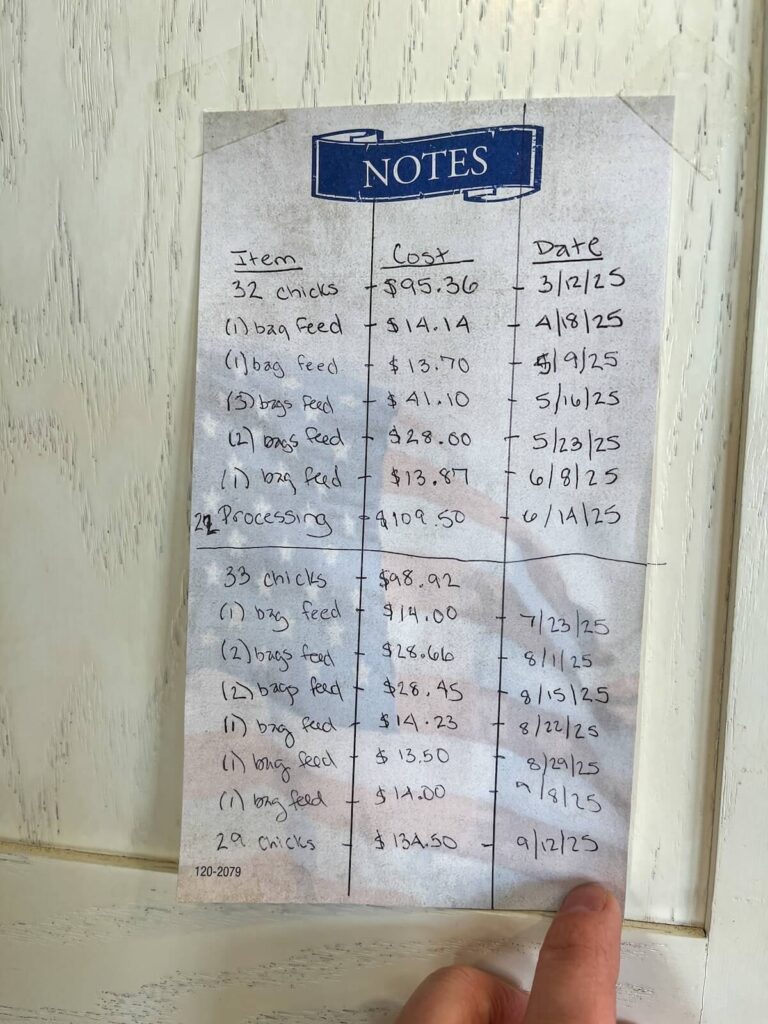 NOTES
Item Cost Date
32 chicks - $95.36 - 3/12/25
(1) bag feed - $14.14 - 4/18/25
(1) bag feed - $13.70 - 5/9/25
(3) bags feed - $41.10 - 5/16/25
(2) bags feed - $28.00 - 5/23/25
(1) bag feed - $13.87 - 6/8/25
22 Processing - $109.50 - 6/14/25
33 chicks - $98.92
(1) bag feed - $14.00 - 7/23/25
(2) bags feed - $28.66 - 8/1/25
(2) bags feed - $28.45 - 8/15/25
(1) bag feed - $14.23 - 8/22/25
(1) bag feed - $13.50 - 8/29/25
(1) bag feed - $14.00 - 9/8/25
29 chicks - $134.50 - 9/12/25
120-2079